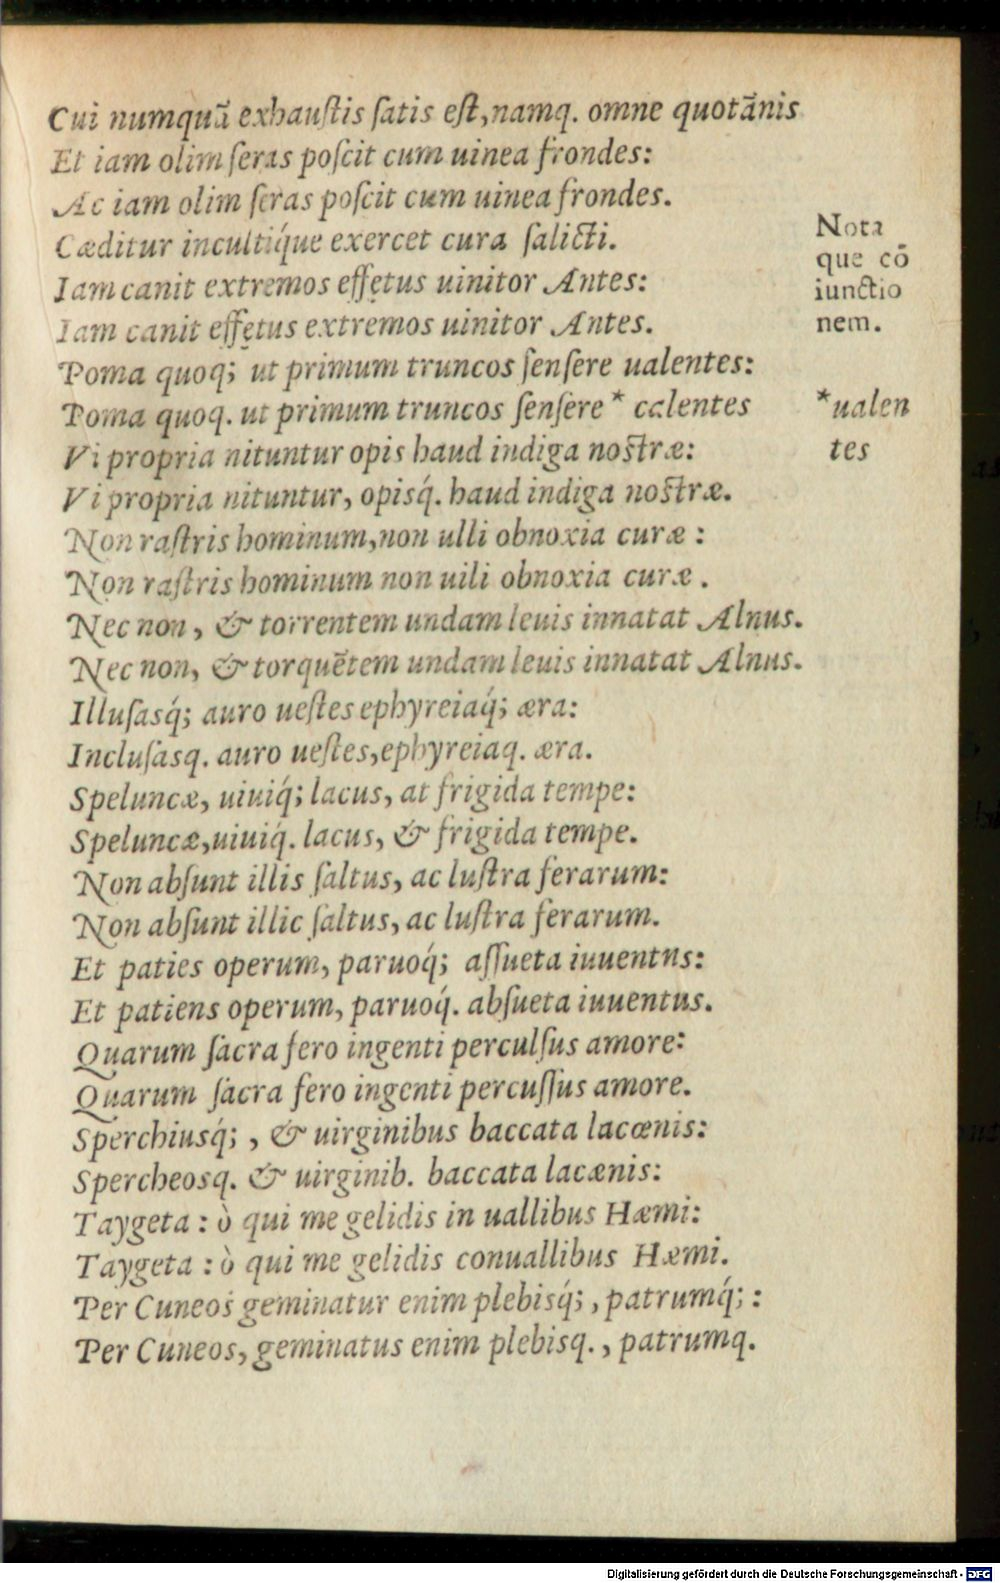 Cui numquã exhauſtis ſatis eſt,namq. omne quotãnis
Et iam olim ſeras poſcit cum uinea frondes:
Ac iam olim ſeras poſcit cum uinea frondes.
Cæditur incultiq́ue exercet cura ſalicti.
Iam canit extremos effętus uinitor Antes:
Iam canit effętus extremos uinitor Antes.
Poma quoq; ut primum truncos ſenſere ualentes:
Poma quoq. ut primum truncos ſenſere * calentes
Vi propria nituntur opis haud indiga noſtræ:
Vi propria nituntur, opisq́. haud indiga noſtræ.
Non raſtris hominum,non ulli obnoxia curæ :
Non raſtris hominum non uili obnoxia curæ .
Nec non , & torrentem undam leuis innatat Alnus.
Nec non, & torquẽtem undam leuis innatat Alnus.
Illuſasq́; auro ueſtes ephyreiaq́; æra:
Incluſasq. auro ueſtes,ephyreiaq. æra.
Speluncæ, uiuiq́; lacus, at frigida tempe:
Speluncæ,uiuiq́. lacus, & frigida tempe.
Non abſunt illis ſaltus, ac luſtra ferarum:
Non abſunt illic ſaltus, ac luſtra ferarum.
Et paties operum, paruoq́; aſſueta iuuentns:
Et patiens operum, paruoq́. abſueta iuuentus.
Quarum ſacra fero ingenti perculſus amore:
Quarum ſacra fero ingenti percuſſus amore.
Sperchiusq́; , & uirginibus baccata lacœnis:
Spercheosq. & uirginib. baccata lacænis:
Taygeta : ò qui me gelidis in uallibus Hæmi:
Taygeta : ò qui me gelidis conuallibus Hæmi.
Per Cuneos geminatur enim plebisq́; , patrumq́; :
Per Cuneos, geminatus enim plebisq. , patrumq.
Nota
que cõ
iunctio
nem.
*ualen
tes
Digitalisierung gefördert durch die Deutsche Forschungsgemeinschaft - DFG